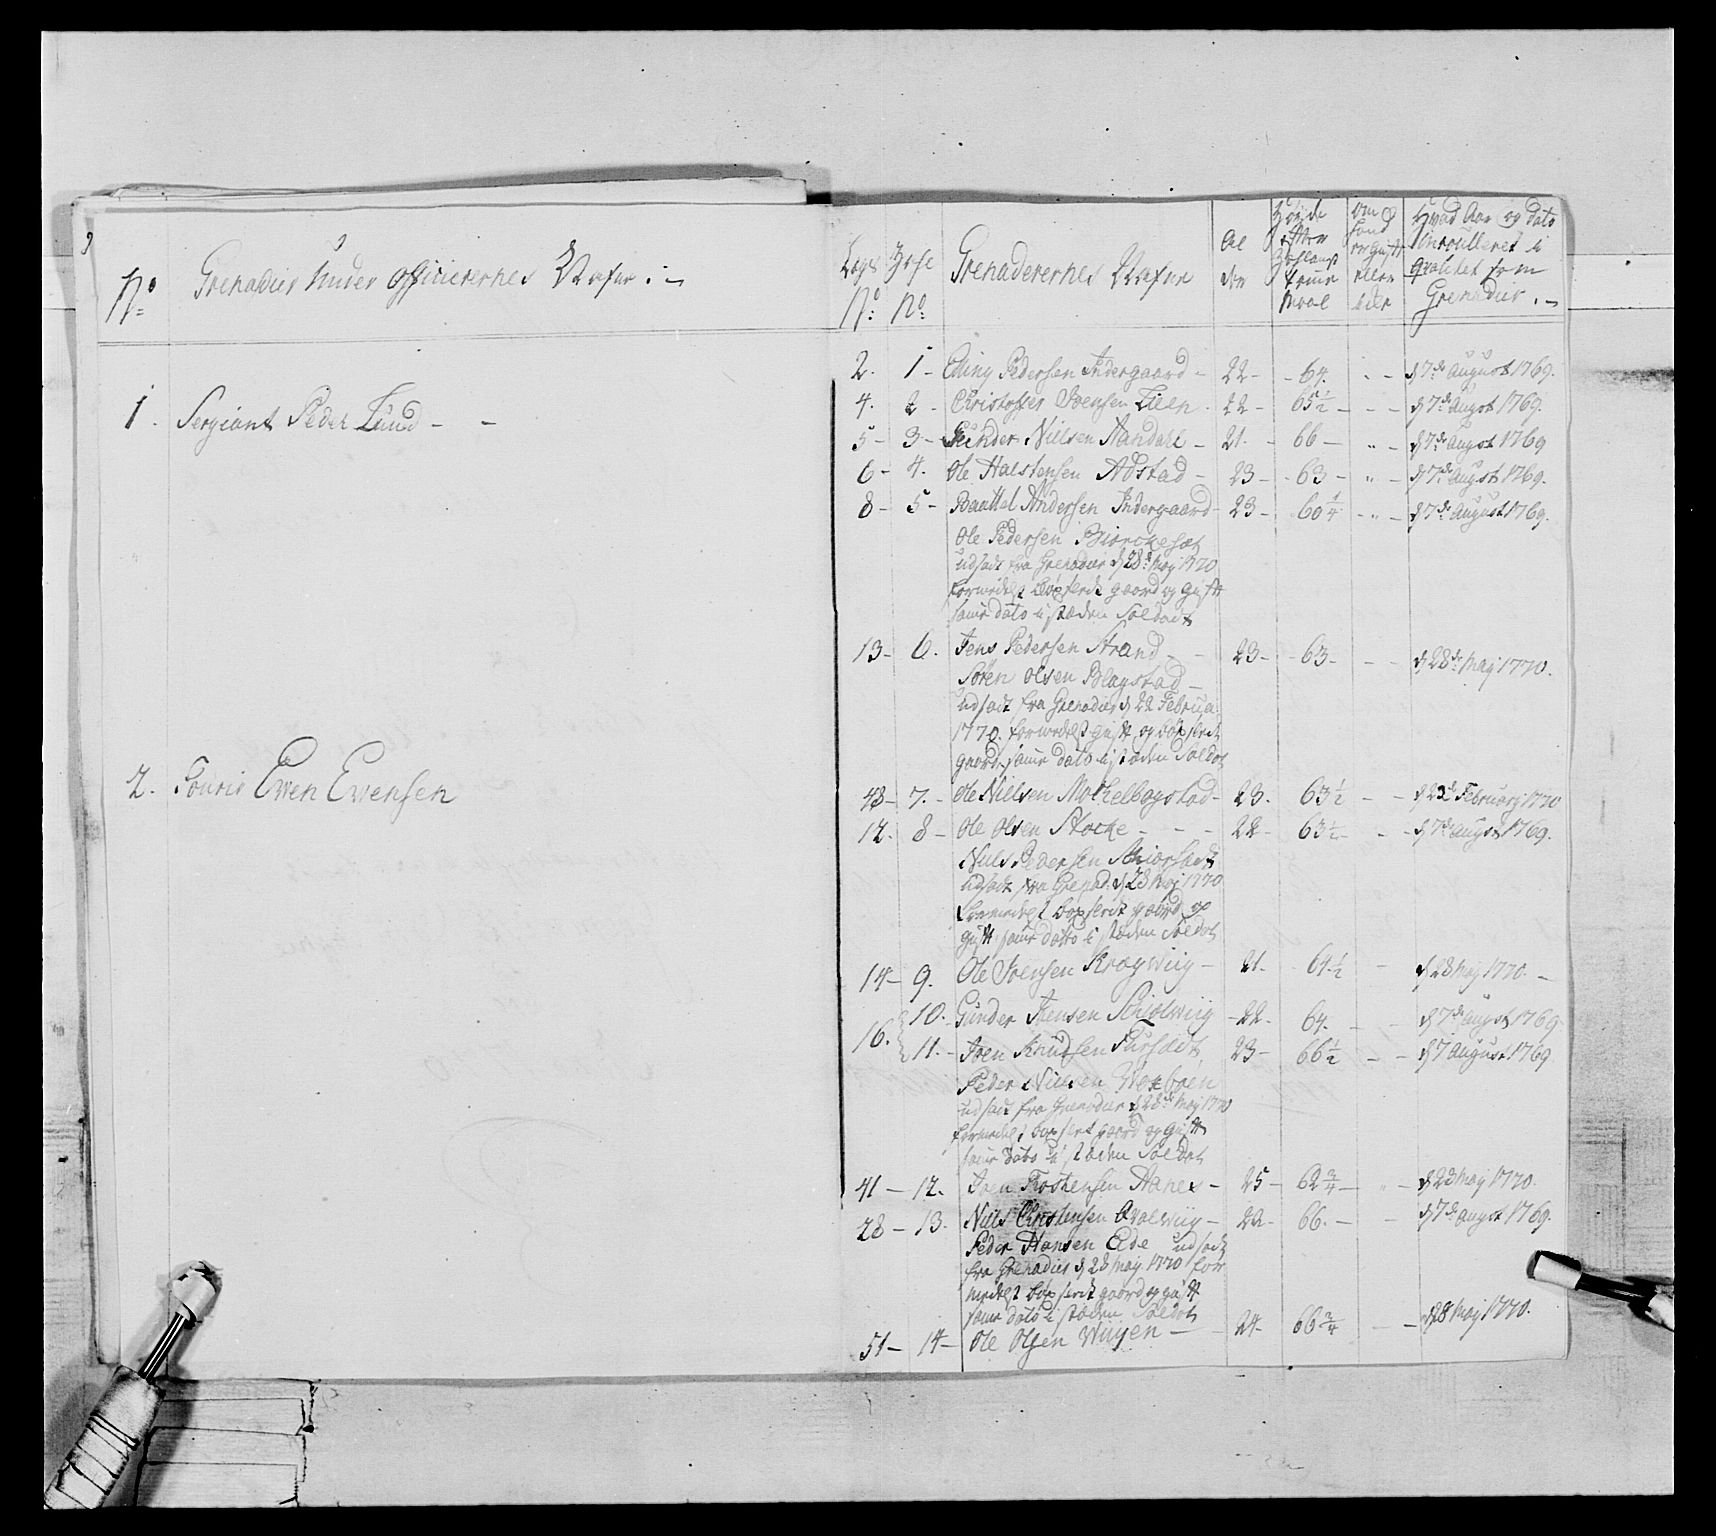 No Grenadier Under Officierernes Nafne :~
1. Sergiant Peder Lund - -
2. Fourir Ewen Ewensen
Legs No: No: Grenaderernes Nafne Al der Høyde efter maal Om hand er gift eller eier Hvad Aar og Dato inroulleret i qvalitet som Grenadier .~
2. 1 - Elling Pedersen Indergaard - 22 - - 64. - - d 7de August 1769.
4. 2 - Christoffer Joensen Lien - 22 - 65 1/2 - - - d 7de Augst 1769.
5 - 3 - Gunder Nielsen Aandahl - 21. - 66 - " - d 7de Augst 1769
6 - 4. Ole Halstensen Adstad - 23 - 63 - " - d 7de Augst 1769.
8 - 5 - Baattel Andersen Indergaard - 23 - 60 1/4 - " - d 7de August 1769.
Ole Pedersen Biørckesæt
udsadt fra Grenadeer d 28de May 1770
formedelst bøxlerit gaard og gift
same dato i stæden Soldat
13 - 6. Jens Pedersen Strand - - 23 - - 63 - - - d 28de May 1770.
Søren Olsen Blagstad -
udsadt fra Grenadier d 22 Februar
1770. formedelst gift og bøxlerit
gaard, same dato i stæden Soldat
48 - 7. - Ole Nielsen Mochelbogstad - 23. 63 1/2 - - d 23de February 1770
12. 8 - Ole Olsen Stocke - - - 22 - 63 1/2 - - - d 7de Augst 1769.
Niels Pedersen
udsadt fra Grenad: d 28 May 1770
formedelst bøxlerit gaard og
gift same dato i stæden Soldat
14 - 9. Ole Joensen Kragwiig - 21. - 64 1/2 - d 28 May 1770. -
16. 10. Gunder Joensen Schiølwiig - 22. 64. - - d 7de Augst 1769.
11. - Joen Knudsen Fursæt 23 - 66 1/2 - - d 7 August 1769
Peder Nielsen
udsadt fra Grenadier d 28de May 1770
formedelst bøxlert gaard og gift
same dato i stæden Soldat
41 - 12. Joen Tostensen Hanes - 25 - 62 3/4 - " - d 28 May 1770.
28 - 13. Niels Christensen Qvalwiig - 22 - 66. - - d 7de Augst 1769.
Peder Hansen Eide udsadt
fra Grenadier d 28 May 1770 for
medelst bøxlerit gaard og gift
same dato i stæden Soldat
51 - 14 - Ole Olsen Wiigen - - 24 - 66 3/4 - - d 28 May 1770.